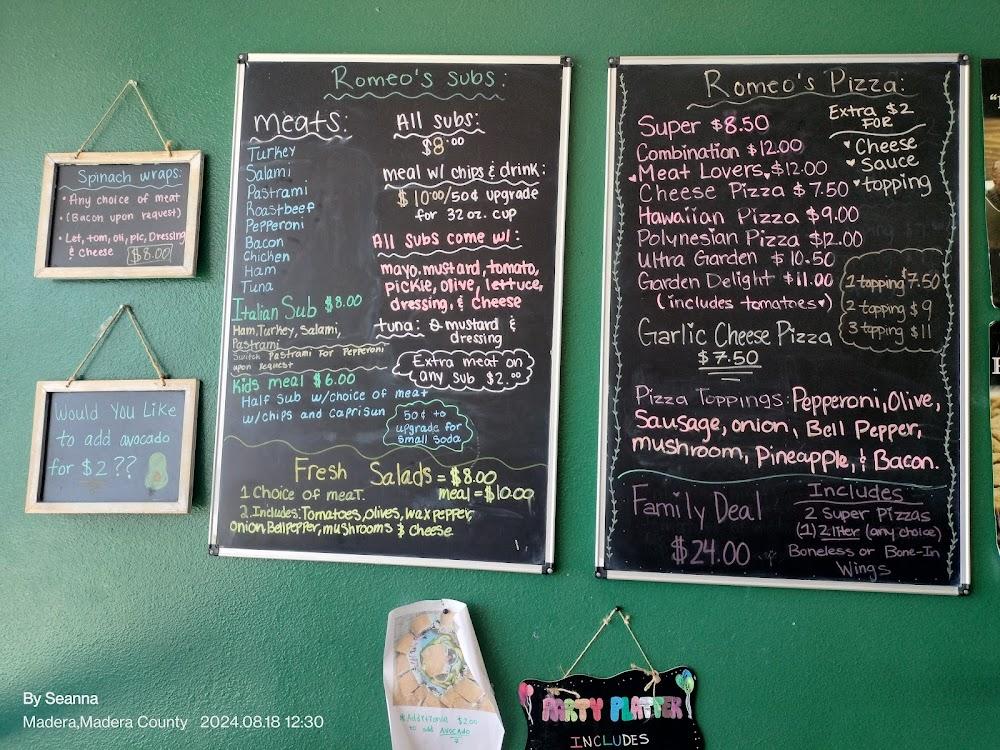 Spinach wraps:
• Any choice of meat
• (Bacon upon request)
• Let, tom, oli, pic, Dressing
& Cheese $8.00
Would You Like
to add avocado
for $2??
Romeo's subs:
meats:
Turkey
Salami
Pastrami
Roastbeef
Pepperoni
Bacon
Chicken
Ham
Tuna
Italian Sub $8.00
Ham, Turkey, Salami,
Pastrami
Switch Pastrami For Pepperoni
upon request
Kids meal $6.00
Half Sub w/choice of meat
w/chips and caprisun
All subs:
$8.00
meal w/ chips & drink:
$10.00/50¢ upgrade
for 32 oz. cup
All Subs come w/:
mayo, mustard, tomato,
pickle, olive, lettuce,
dressing, & cheese
tuna: mustard &
dressing
Extra meat on
any sub $2.00
50¢ to
upgrade for
small soda
Fresh Salads = $8.00
meal = $10.00
1 Choice of meat.
2. Includes: Tomatoes, olives, wax pepper,
onion, Bellpepper, mushrooms & cheese
Romeo's Pizza:
Super $8.50
Combination $12.00
Meat Lovers $12.00
Cheese Pizza $7.50
Hawaiian Pizza $9.00
Polynesian Pizza $12.00
Ultra Garden $10.50
Garden Delight $11.00
(includes tomatoes♥)
Garlic Cheese Pizza
$7.50
Extra $2
FOR
♥Cheese
♥Sauce
♥topping
1 topping $7.50
2 topping $9
3 topping $11
Pizza Toppings: Pepperoni, Olive,
Sausage, onion, Bell Pepper,
mushroom, Pineapple, & Bacon.
Family Deal
$24.00
Includes
2 Super Pizzas
(1) 2 liter (any choice)
Boneless or Bone-In
Wings
Additional $2.00
to add AVOCADO
PARTY PLATTER
INCLUDES
By Seanna
Madera,Madera County 2024.08.18 12:30